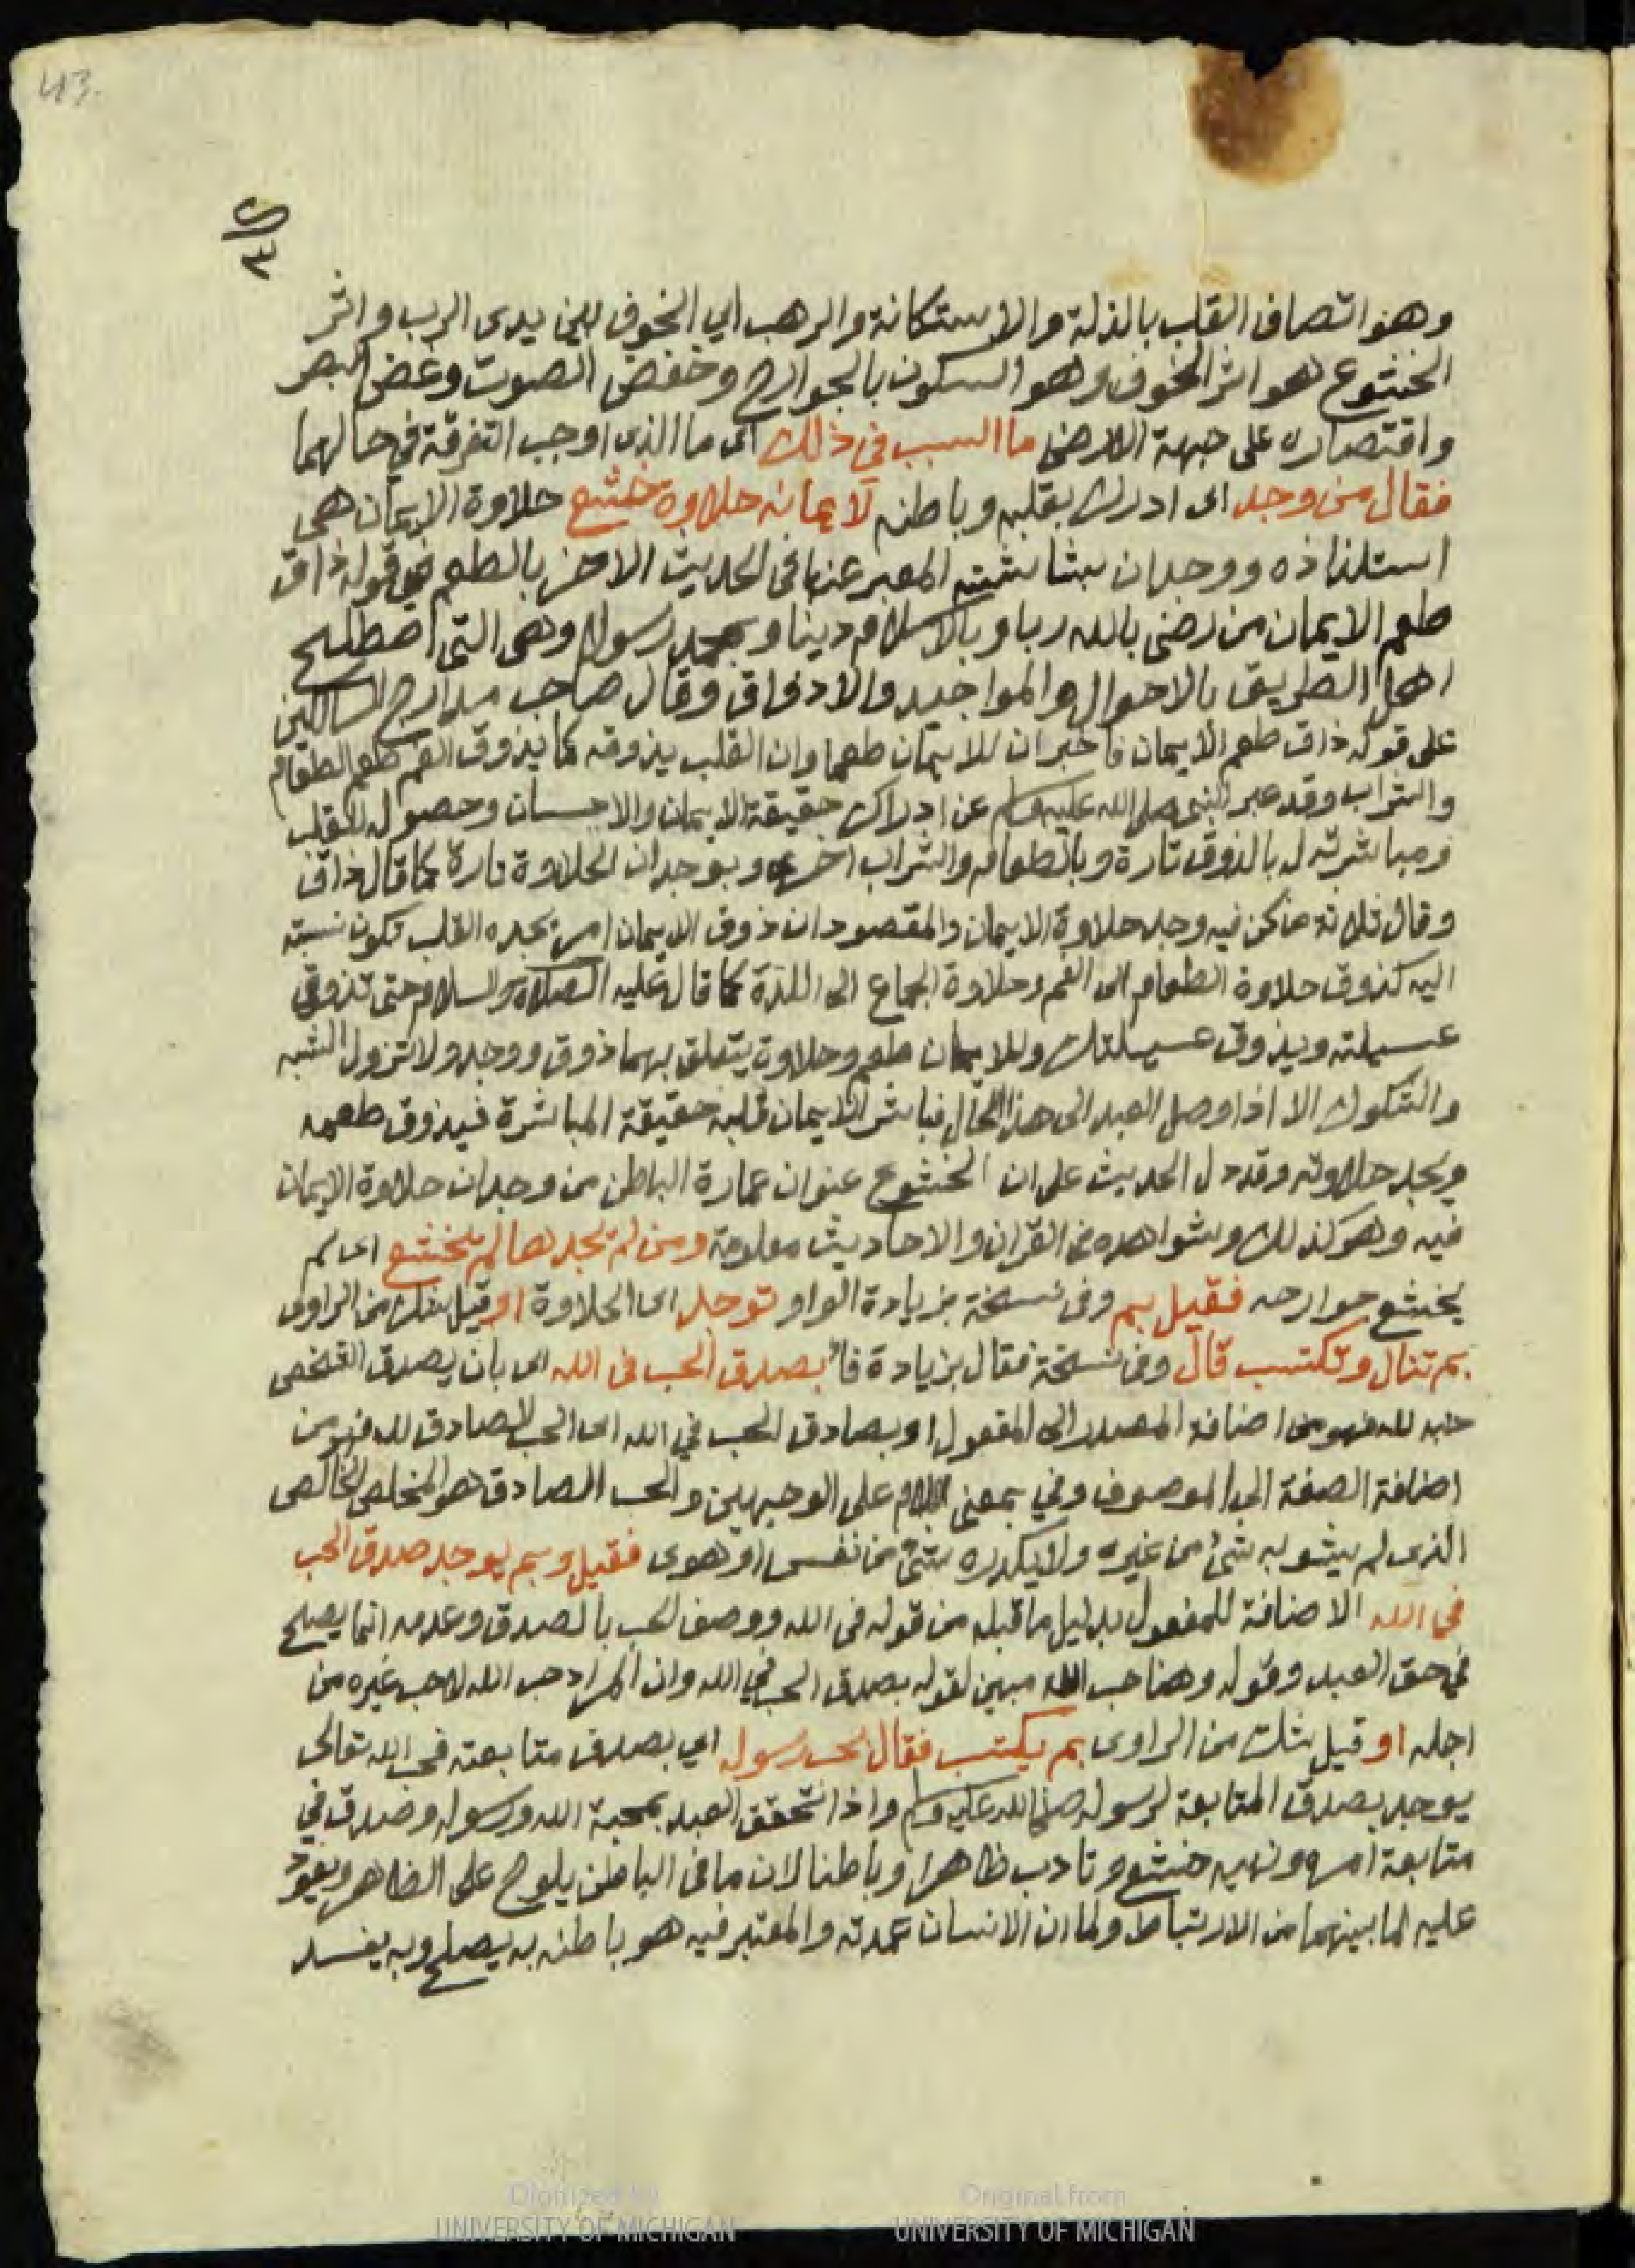 43
وهو اتصاف القلب بالذلة والاستكانة والرهب اي الخوف بين يدى الرب واثر
الخشوع هو اثر الخوف وهو السكون بالجوارح وخفض الصوت وغض البصر
واقتصاره على جهة الارض ما السبب في ذلك اى ما الذى اوجب التفرقة في حالهما
فقال من وجد اى ادرك بقلبه وباطنه لايمانه حلاوة خشع حلاوة الايمان هى
استلذاذه ووجدان بشاشته المعبر عنها فى الحديث الاخر بالطعم في قوله ذاق
طعم الايمان من رضى بالله ربا وبالاسلام دينا وبمحمد رسولا وهى التى اصطلح
اهل الطريق بالاحوال والمواجيد والاذواق وقال صاحب مدارج السالكين
على قوله ذاق طعم الايمان فاخبر ان للايمان طعما وان القلب يذوقه كما يذوق الفم طعم الطعام
والشراب وقد عبر النبي صلى الله عليه وسلم عن ادراك حقيقة الايمان والاحسان وحصوله للقلب
ومباشرته له بالذوق تارة وبالطعام والشراب اخرى وبوجدان الحلاوة تارة كما قال ذاق
وقال ثلاثة من كن فيه وجد حلاوة الايمان والمقصود ان ذوق الايمان امر يجده القلب تكون نسبته
اليه كذوق حلاوة الطعام الى الفم وحلاوة الجماع الى اللذة كما قال عليه الصلاة والسلام حتى تذوقي
عسيلته ويذوق عسيلتك وللايمان طعم وحلاوة يتعلق بهما ذوق ووجد ولا تزول الشبه
والشكوك الا اذا وصل العبد الى هذا الحال فباشر الايمان قلبه حقيقة المباشرة فيذوق طعمه
ويجد حلاوته وقد دل الحديث على ان الخشوع عنوان عمارة الباطن من وجدان حلاوة الايمان
فيه وهو كذلك وشواهده من القران والاحاديث معلومة ومن لم يجدها لم يخشع اى لم
يخشع جوارحه فقيل بم وفى نسخة بزيادة الواو توجد اى الحلاوة او قيل شك من الراوى
بم تنال وتكتسب قال وفى نسخة فقال بزيادة فاء بصدق الحب فى الله اى بان يصدق الشخص
حبه لله فهو من اضافة المصدر الى المفعول او بصادق الحب في الله اى الحب الصادق لله فهو من
اضافة الصفة الى الموصوف وفي بمعنى اللام على الوجهين والحب الصادق هو المخلص الخالص
الذى لم يشوبه شئ من غيره ولا يكدره شئ من نفس او هوى فقيل وبم يوجد صدق الحب
في الله الاضافة للمفعول بدليل ما قبله من قوله فى الله ووصف الحب بالصدق وعدمه انما يصلح
في حق العبد وقوله وهنا حب الله مبين لقوله بصدق الحب في الله وان المراد حب الله لا حب غيره من
اجله او قيل شك من الراوى بم يكتسب فقال بحب رسوله اي بصدق متابعته فحب الله تعالى
يوجد بصدق المتابعة لرسوله صلى الله عليه وسلم واذا تحقق العبد بمحبة الله ورسوله وصدق في
متابعة امره ونهيه خشع وتادب ظاهرا وباطنا لان ما فى الباطن يلوح على الظاهر ويعود
عليه لما بينهما من الارتباط ولما ان الانسان عمدته والمعتبر فيه هو باطنه به يصلح وبه يفسد
Digitized by
UNIVERSITY OF MICHIGAN
Original from
UNIVERSITY OF MICHIGAN